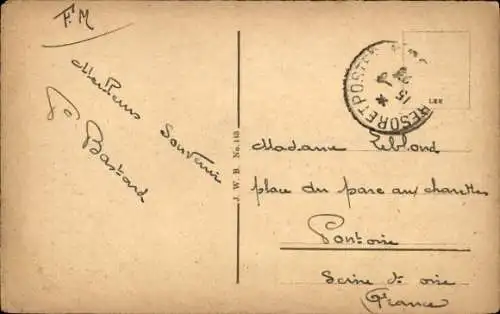 F.M
Meilleurs Souvenirs
P. Bastard
J. W. B. No. 143
TRESOR ET POSTES
15
L&K
Madame Leblond
place du parc aux charrettes
Pontoise
Seine et oise
(France)